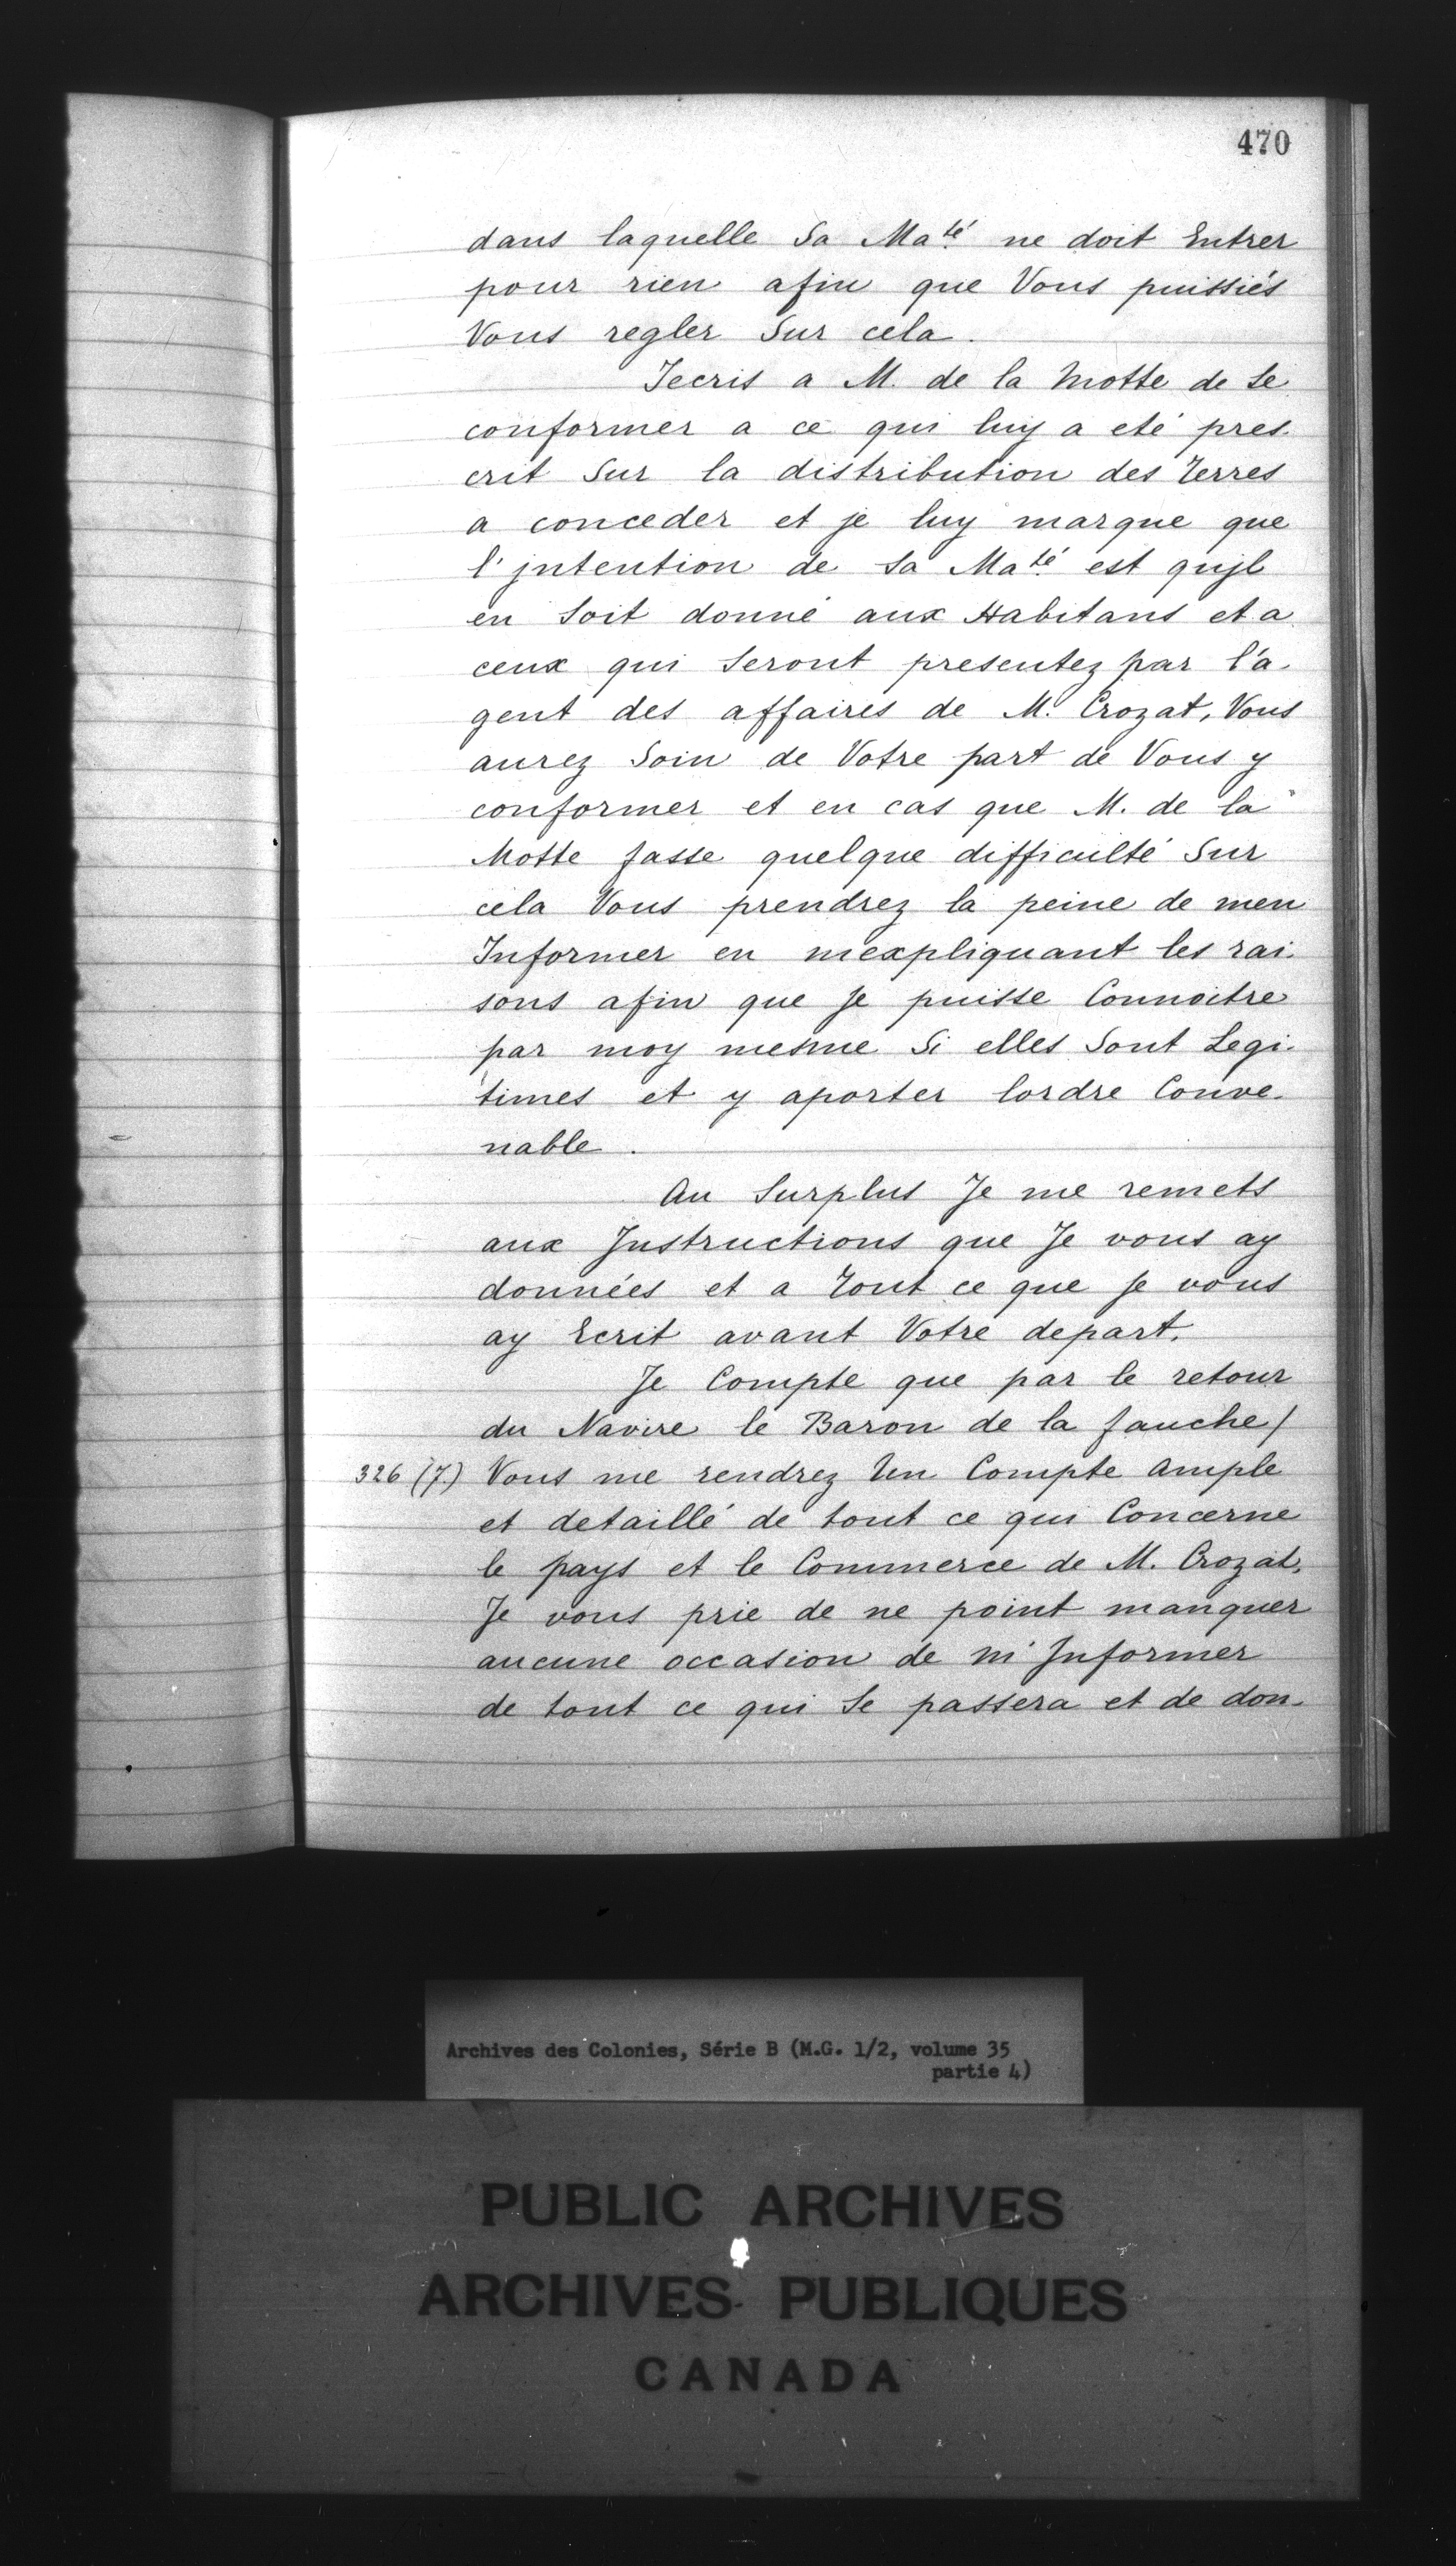 470
dans laquelle Sa Ma.té ne doit Entrer
pour rien afin que Vous puissiés
Vous regler Sur cela.
Jecris a M. de la Motte de Se
conformer a ce qui luy a eté pres-
crit Sur la distribution des Terres
a conceder et je luy marque que
l'jntention de Sa Ma.té est qujl
en Soit donné aux Habitans et a
ceux qui Seront presentez par l'a-
gent des affaires de M. Crozat, Vous
aurez Soin de Votre part de Vous y
conformer et en cas que M. de la
Motte fasse quelque difficulté Sur
cela Vous prendrez la peine de men
Informer en mexpliquant les rai-
sons afin que je puisse Connoitre
par moy mesme Si elles Sont Legi-
times et y aporter lordre Conve-
nable.
Au Surplus Je me remets
aux Instructions que Je vous ay
données et a Tout ce que je vous
ay Ecrit avant Votre depart.
Je Compte que par le retour
du Navire le Baron de la fauche/
326 (7.) Vous me rendrez Un Compte Ample
et detaillé de tout ce qui Concerne
le pays et le Commerce de M. Crozat,
Je vous prie de ne point manquer
aucune occasion de m'Informer
de tout ce qui Se passera et de don-
Archives des Colonies, Série B (M.G. 1/2, volume 35
partie 4)
PUBLIC ARCHIVES
ARCHIVES PUBLIQUES
CANADA